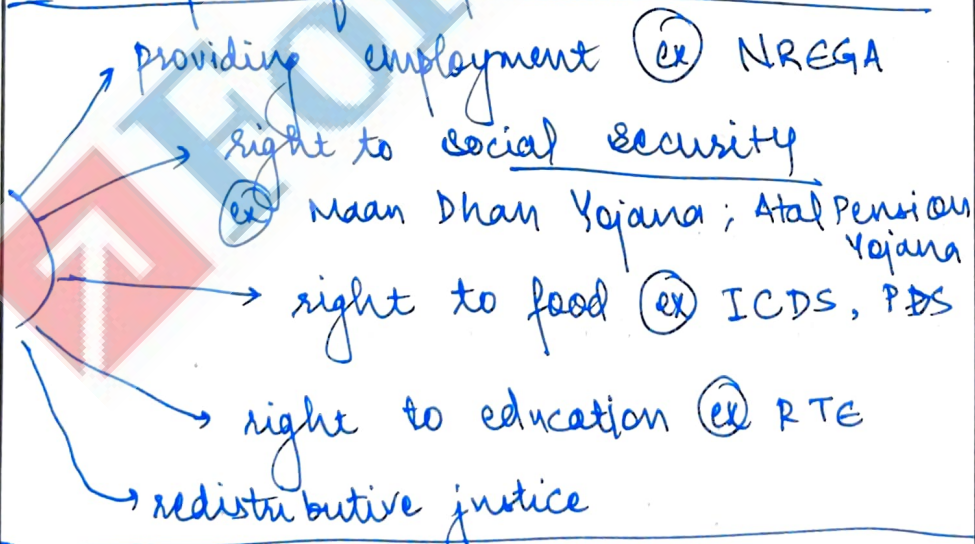 providing employment ex NREGA
right to social security
ex Maan Dhan Yojana ; Atal Pension
Yojana
right to food ex ICDS, PDS
right to education ex RTE
redistributive justice